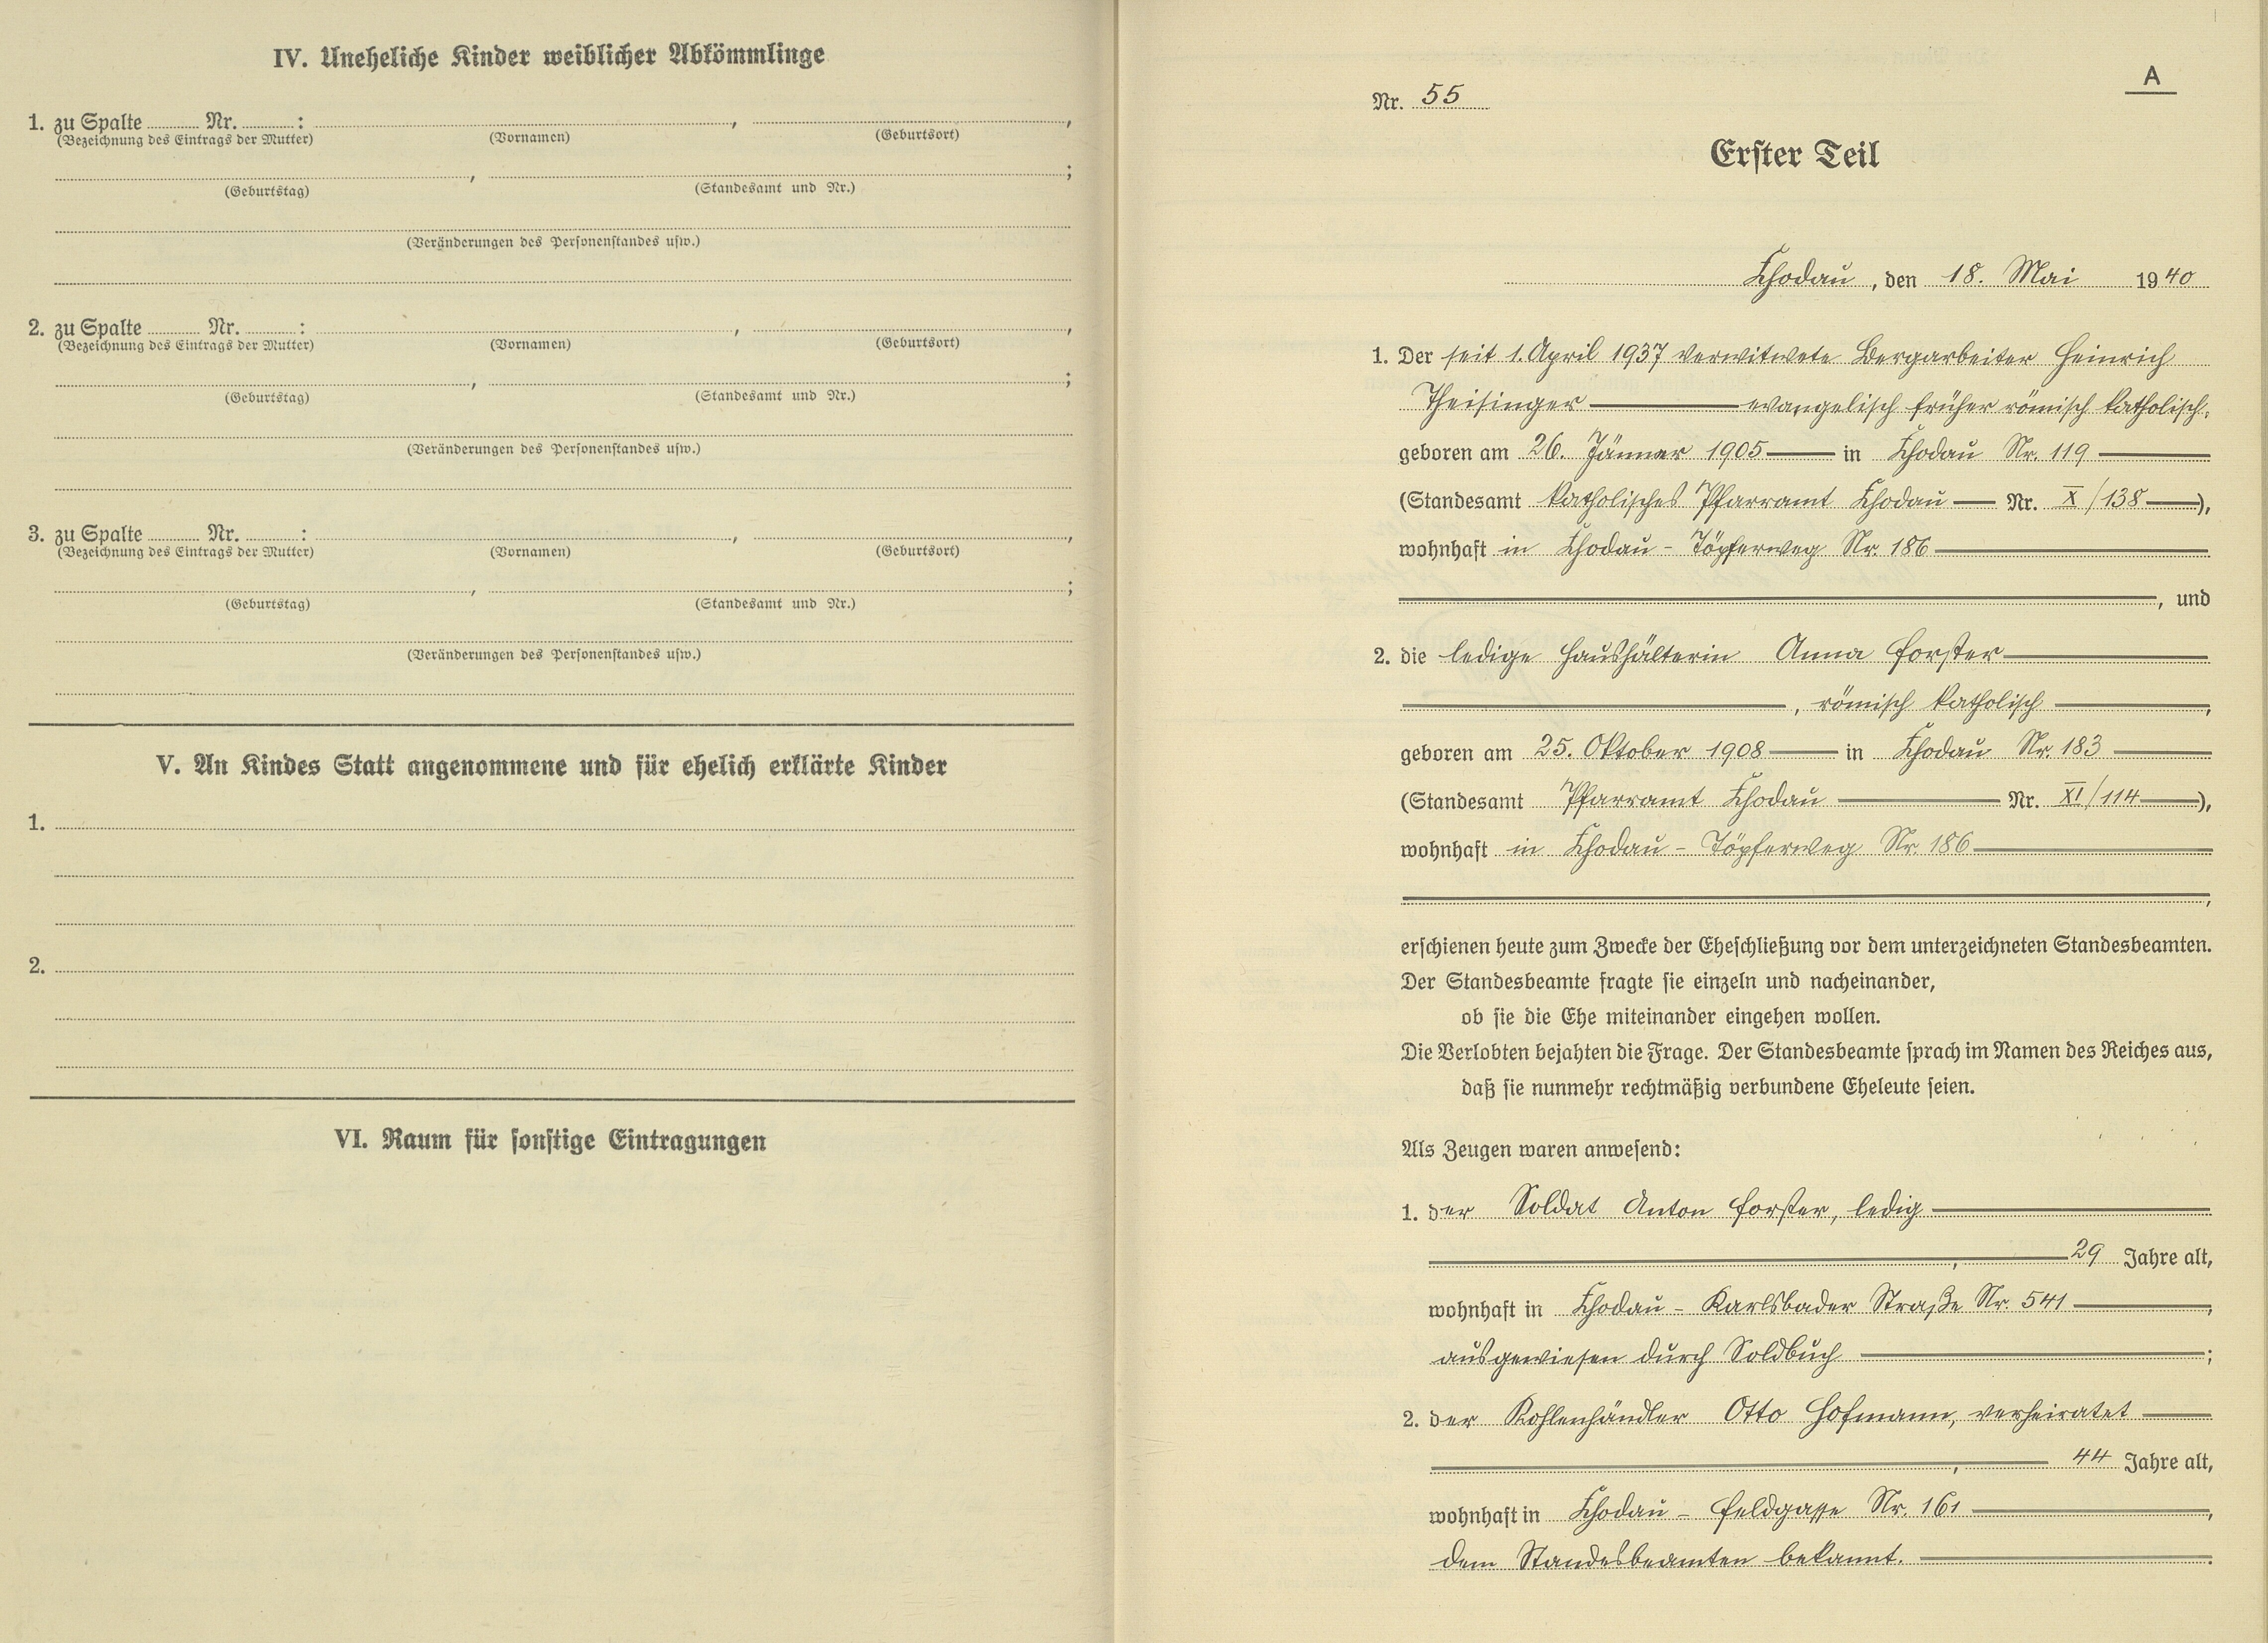 IV. Uneheliche Kinder weiblicher Abkömmlinge
1. zu Spalte ........ Nr. ........ : ........, ........,
(Bezeichnung des Eintrags der Mutter) (Vornamen) (Geburtsort)
........, ........;
(Geburtstag) (Standesamt und Nr.)
(Veränderungen des Personenstandes usw.)
2. zu Spalte ........ Nr. ........ : ........, ........,
(Bezeichnung des Eintrags der Mutter) (Vornamen) (Geburtsort)
........, ........;
(Geburtstag) (Standesamt und Nr.)
(Veränderungen des Personenstandes usw.)
3. zu Spalte ........ Nr. ........ : ........, ........,
(Bezeichnung des Eintrags der Mutter) (Vornamen) (Geburtsort)
........, ........;
(Geburtstag) (Standesamt und Nr.)
(Veränderungen des Personenstandes usw.)
V. An Kindes Statt angenommene und für ehelich erklärte Kinder
1.
2.
VI. Raum für sonstige Eintragungen
A
Nr. 55
Erster Teil
Chodau, den 18. Mai 1940
1. Der seit 1. April 1937 verwitwete Bergarbeiter Heinrich
Theisinger — evangelisch früher römisch katholisch,
geboren am 26. Jänner 1905 — in Chodau Nr. 119 —
(Standesamt katholisches Pfarramt Chodau — Nr. X/138 —),
wohnhaft in Chodau - Töpferweg Nr. 186 —
—, und
2. die ledige Haushälterin Anna Forster —
—, römisch katholisch —,
geboren am 25. Oktober 1908 — in Chodau Nr. 183 —
(Standesamt Pfarramt Chodau — Nr. XI/114 —),
wohnhaft in Chodau - Töpferweg Nr. 186 —
—,
erschienen heute zum Zwecke der Eheschließung vor dem unterzeichneten Standesbeamten.
Der Standesbeamte fragte sie einzeln und nacheinander,
ob sie die Ehe miteinander eingehen wollen.
Die Verlobten bejahten die Frage. Der Standesbeamte sprach im Namen des Reiches aus,
daß sie nunmehr rechtmäßig verbundene Eheleute seien.
Als Zeugen waren anwesend:
1. der Soldat Anton Forster, ledig —
—, — 29 Jahre alt,
wohnhaft in Chodau - Karlsbader Straße Nr. 541 —,
ausgewiesen durch Soldbuch —;
2. der Kohlenhändler Otto Hofmann, verheiratet —
—, — 44 Jahre alt,
wohnhaft in Chodau - Feldgasse Nr. 161 —,
dem Standesbeamten bekannt. —.